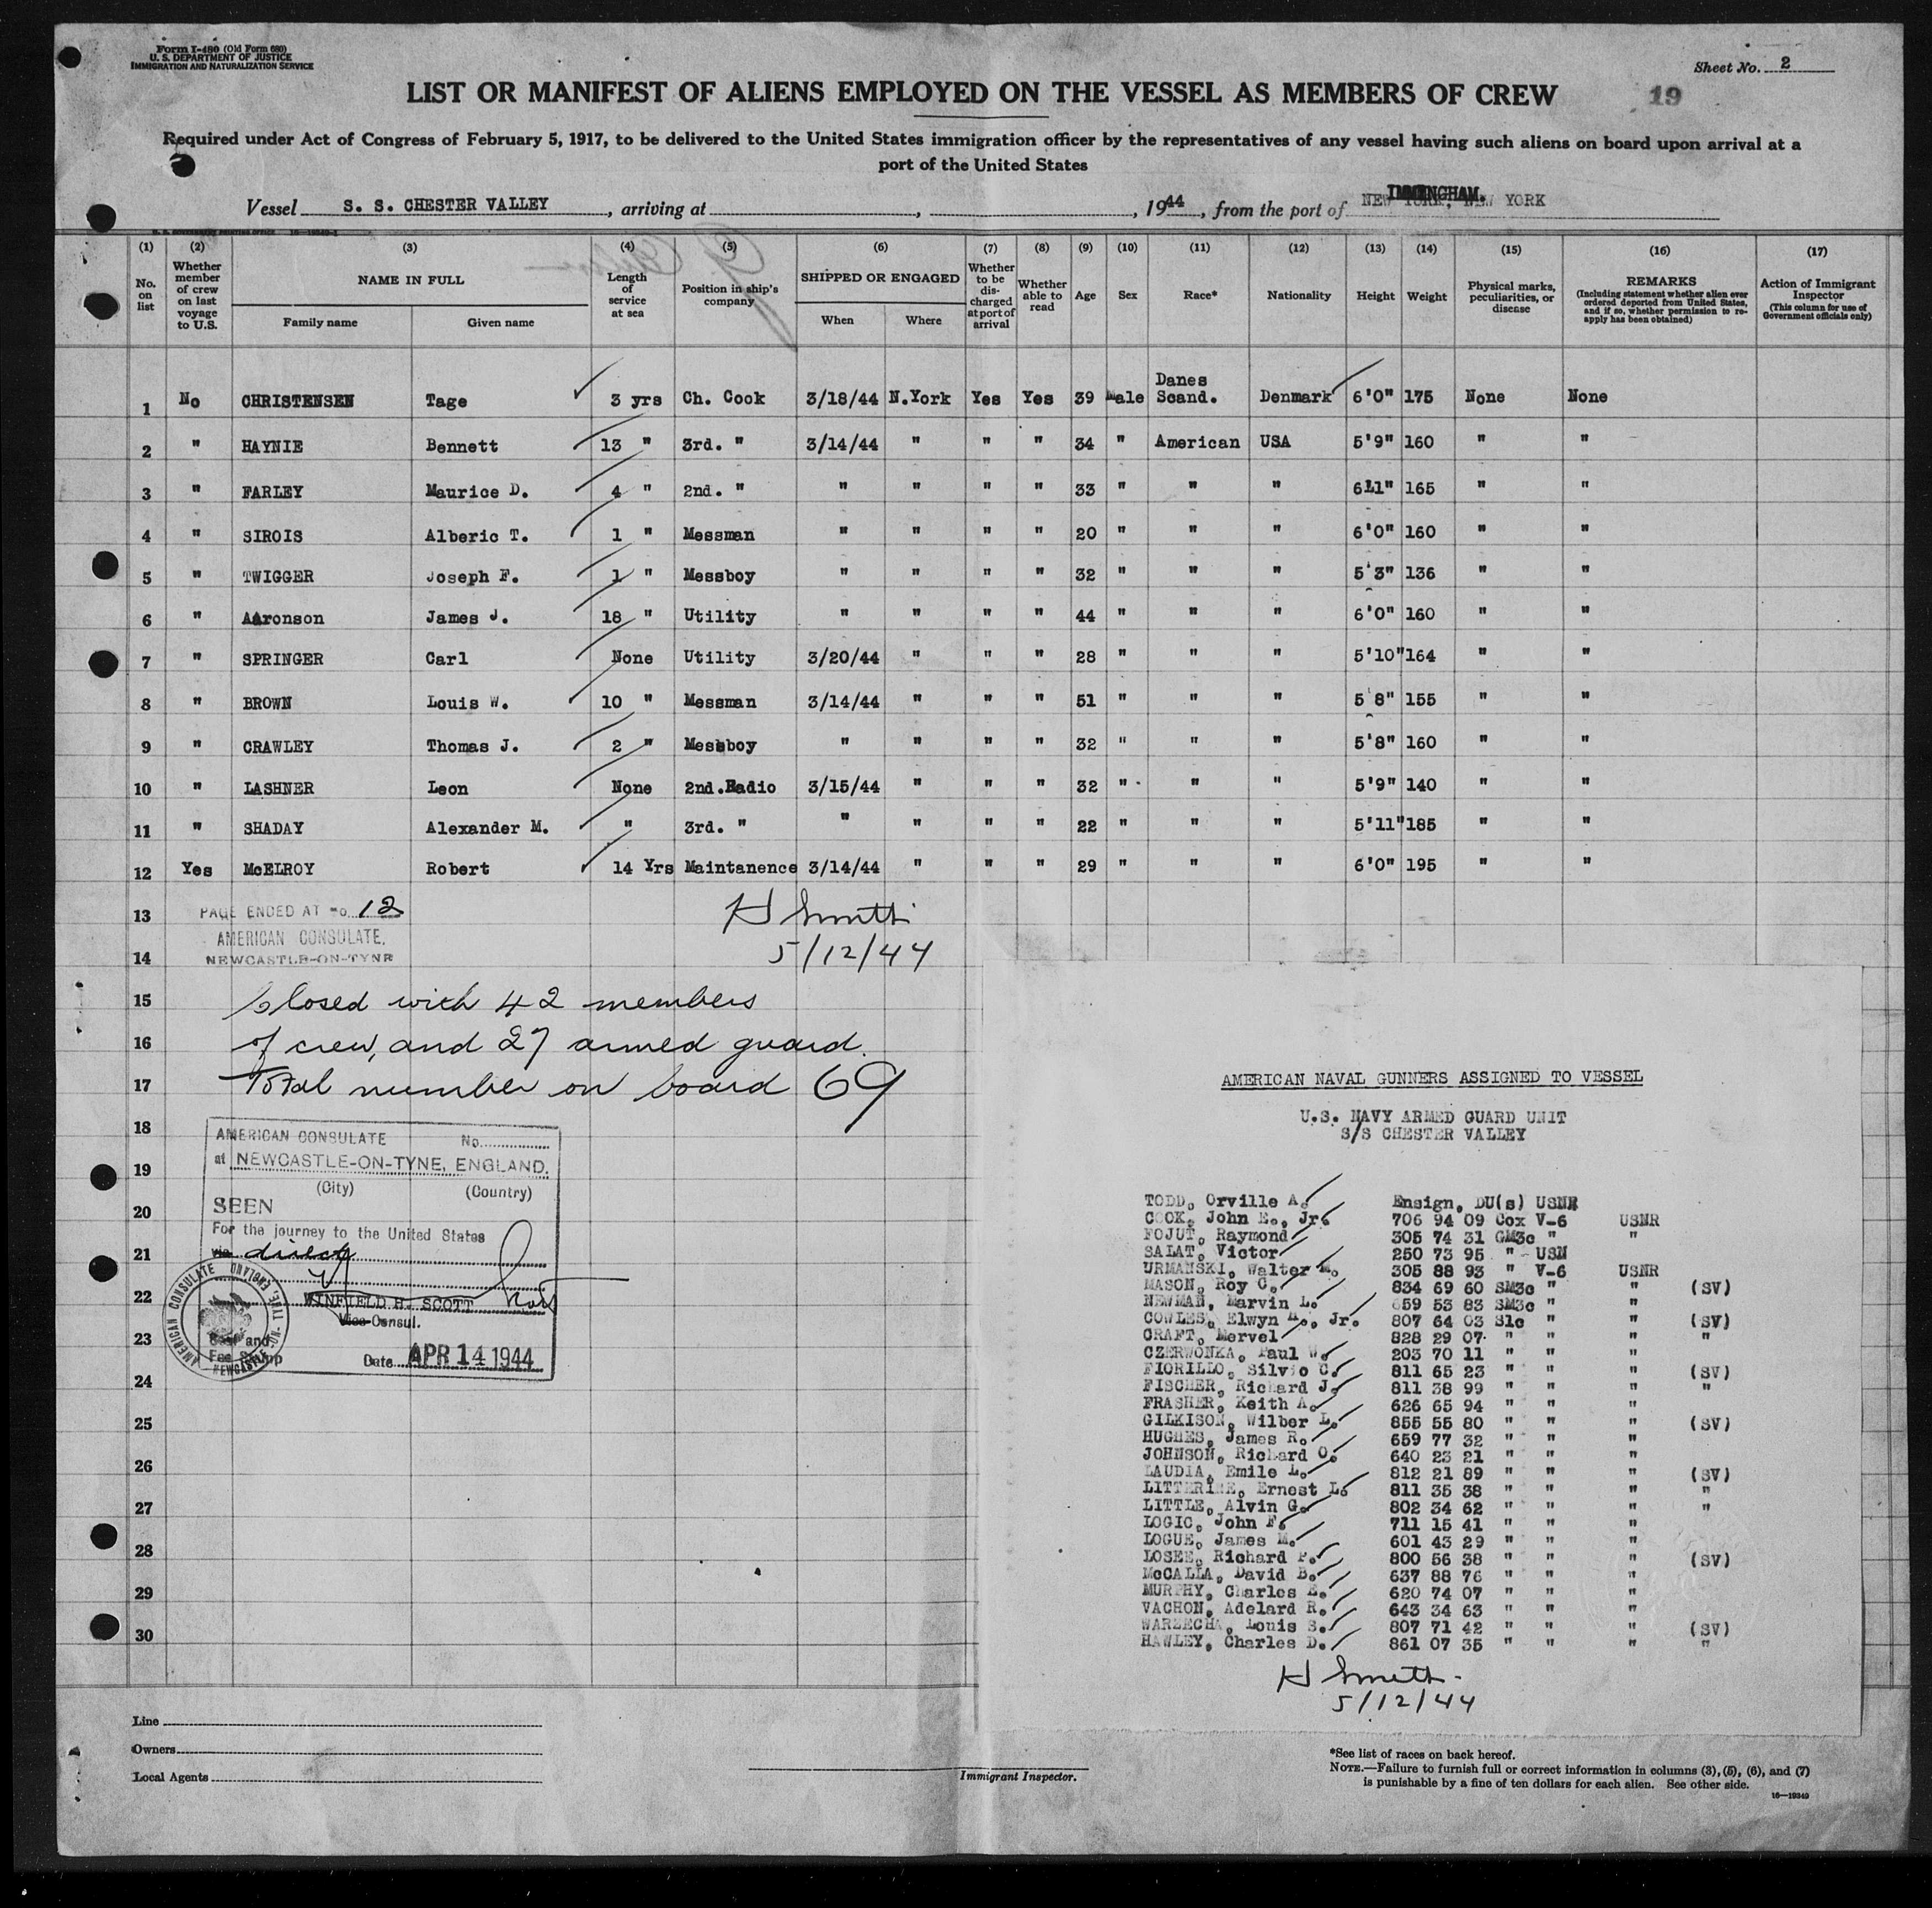 Form I-480 (Old Form 680)
U. S. DEPARTMENT OF JUSTICE
IMMIGRATION AND NATURALIZATION SERVICE
Sheet No. 2
LIST OR MANIFEST OF ALIENS EMPLOYED ON THE VESSEL AS MEMBERS OF CREW
19
Required under Act of Congress of February 5, 1917, to be delivered to the United States immigration officer by the representatives of any vessel having such aliens on board upon arrival at a
port of the United States
Vessel S. S. CHESTER VALLEY, arriving at , , 1944, from the port of NEW YORK, NEW YORK
IMMINGHAM.
(1) (2) (3) (4) (5) (6) (7) (8) (9) (10) (11) (12) (13) (14) (15) (16) (17)
No. on list
Whether member of crew on last voyage to U.S.
NAME IN FULL
Family name Given name
Length of service at sea
Position in ship's company
SHIPPED OR ENGAGED
When Where
Whether to be discharged at port of arrival
Whether able to read
Age
Sex
Race*
Nationality
Height
Weight
Physical marks, peculiarities, or disease
REMARKS
(Including statement whether alien ever ordered deported from United States, and if so, whether permission to reapply has been obtained)
Action of Immigrant Inspector
(This column for use of Government officials only)
1 No CHRISTENSEN Tage 3 yrs Ch. Cook 3/18/44 N.York Yes Yes 39 Male Danes Scand. Denmark 6'0" 175 None None
2 " HAYNIE Bennett 13 " 3rd. " 3/14/44 " " " 34 " American USA 5'9" 160 " "
3 " FARLEY Maurice D. 4 " 2nd. " " " " " 33 " " " 6'1" 165 " "
4 " SIROIS Alberic T. 1 " Messman " " " " 20 " " " 6'0" 160 " "
5 " TWIGGER Joseph F. 1 " Messboy " " " " 32 " " " 5'3" 136 " "
6 " Aaronson James J. 18 " Utility " " " " 44 " " " 6'0" 160 " "
7 " SPRINGER Carl None Utility 3/20/44 " " " 28 " " " 5'10" 164 " "
8 " BROWN Louis W. 10 " Messman 3/14/44 " " " 51 " " " 5'8" 155 " "
9 " CRAWLEY Thomas J. 2 " Messboy " " " " 32 " " " 5'8" 160 " "
10 " LASHNER Leon None 2nd.Radio 3/15/44 " " " 32 " " " 5'9" 140 " "
11 " SHADAY Alexander M. " 3rd. " " " " " 22 " " " 5'11" 185 " "
12 Yes McELROY Robert 14 Yrs Maintanence 3/14/44 " " " 29 " " " 6'0" 195 " "
13
14
15
16
17
18
19
20
21
22
23
24
25
26
27
28
29
30
PAGE ENDED AT No. 12
AMERICAN CONSULATE,
NEWCASTLE-ON-TYNE
H Smith
5/12/44
Closed with 42 members
of crew, and 27 armed guard.
Total number on board 69
AMERICAN CONSULATE No.
at NEWCASTLE-ON-TYNE, ENGLAND.
(City) (Country)
SEEN
For the journey to the United States
via direct
WINFIELD H. SCOTT
Vice Consul.
Seal and
Fee Stamp
Date APR 14 1944
AMERICAN CONSULATE NEWCASTLE-ON-TYNE, ENGLAND
AMERICAN NAVAL GUNNERS ASSIGNED TO VESSEL
U.S. NAVY ARMED GUARD UNIT
S/S CHESTER VALLEY
TODD, Orville A. Ensign, DU(s) USNR
COOK, John E., Jr. 706 94 09 Cox V-6 USNR
FOJUT, Raymond 305 74 31 GM3c " "
SALAT, Victor 250 73 95 " - USN
URMANSKI, Walter 305 88 93 " V-6 USNR
MASON, Roy C. 834 69 60 SM3c " " (SV)
NEWMAN, Marvin L. 659 53 83 SM3c " "
COWLES, Elwyn , Jr. 807 64 03 S1c " " (SV)
CRAFT, Mervel 828 29 07 " " " "
CZERWONKA, Paul W. 203 70 11 " " "
FIORILLO, Silvio C. 811 65 23 " " " (SV)
FISCHER, Richard J. 811 38 99 " " " "
FRASHER, Keith A. 626 65 94 " " "
GILKISON, Wilber L. 855 55 80 " " " (SV)
HUGHES, James R. 659 77 32 " " "
JOHNSON, Richard O. 640 23 21 " " "
LAUDIA, Emile L. 812 21 89 " " " (SV)
LITTERINE, Ernest L. 811 35 38 " " " "
LITTLE, Alvin G. 802 34 62 " " " "
LOGIC, John F. 711 15 41 " " "
LOGUE, James M. 601 43 29 " " "
LOSEE, Richard P. 800 56 38 " " " (SV)
McCALLA, David B. 637 88 76 " " "
MURPHY, Charles E. 620 74 07 " " "
VACHON, Adelard R. 643 34 63 " " "
WARZECHA, Louis S. 807 71 42 " " " (SV)
HAWLEY, Charles D. 861 07 35 " " " "
H Smith
5/12/44
Line
Owners
Local Agents
Immigrant Inspector.
*See list of races on back hereof.
NOTE.—Failure to furnish full or correct information in columns (3), (5), (6), and (7)
is punishable by a fine of ten dollars for each alien. See other side.
16—19349